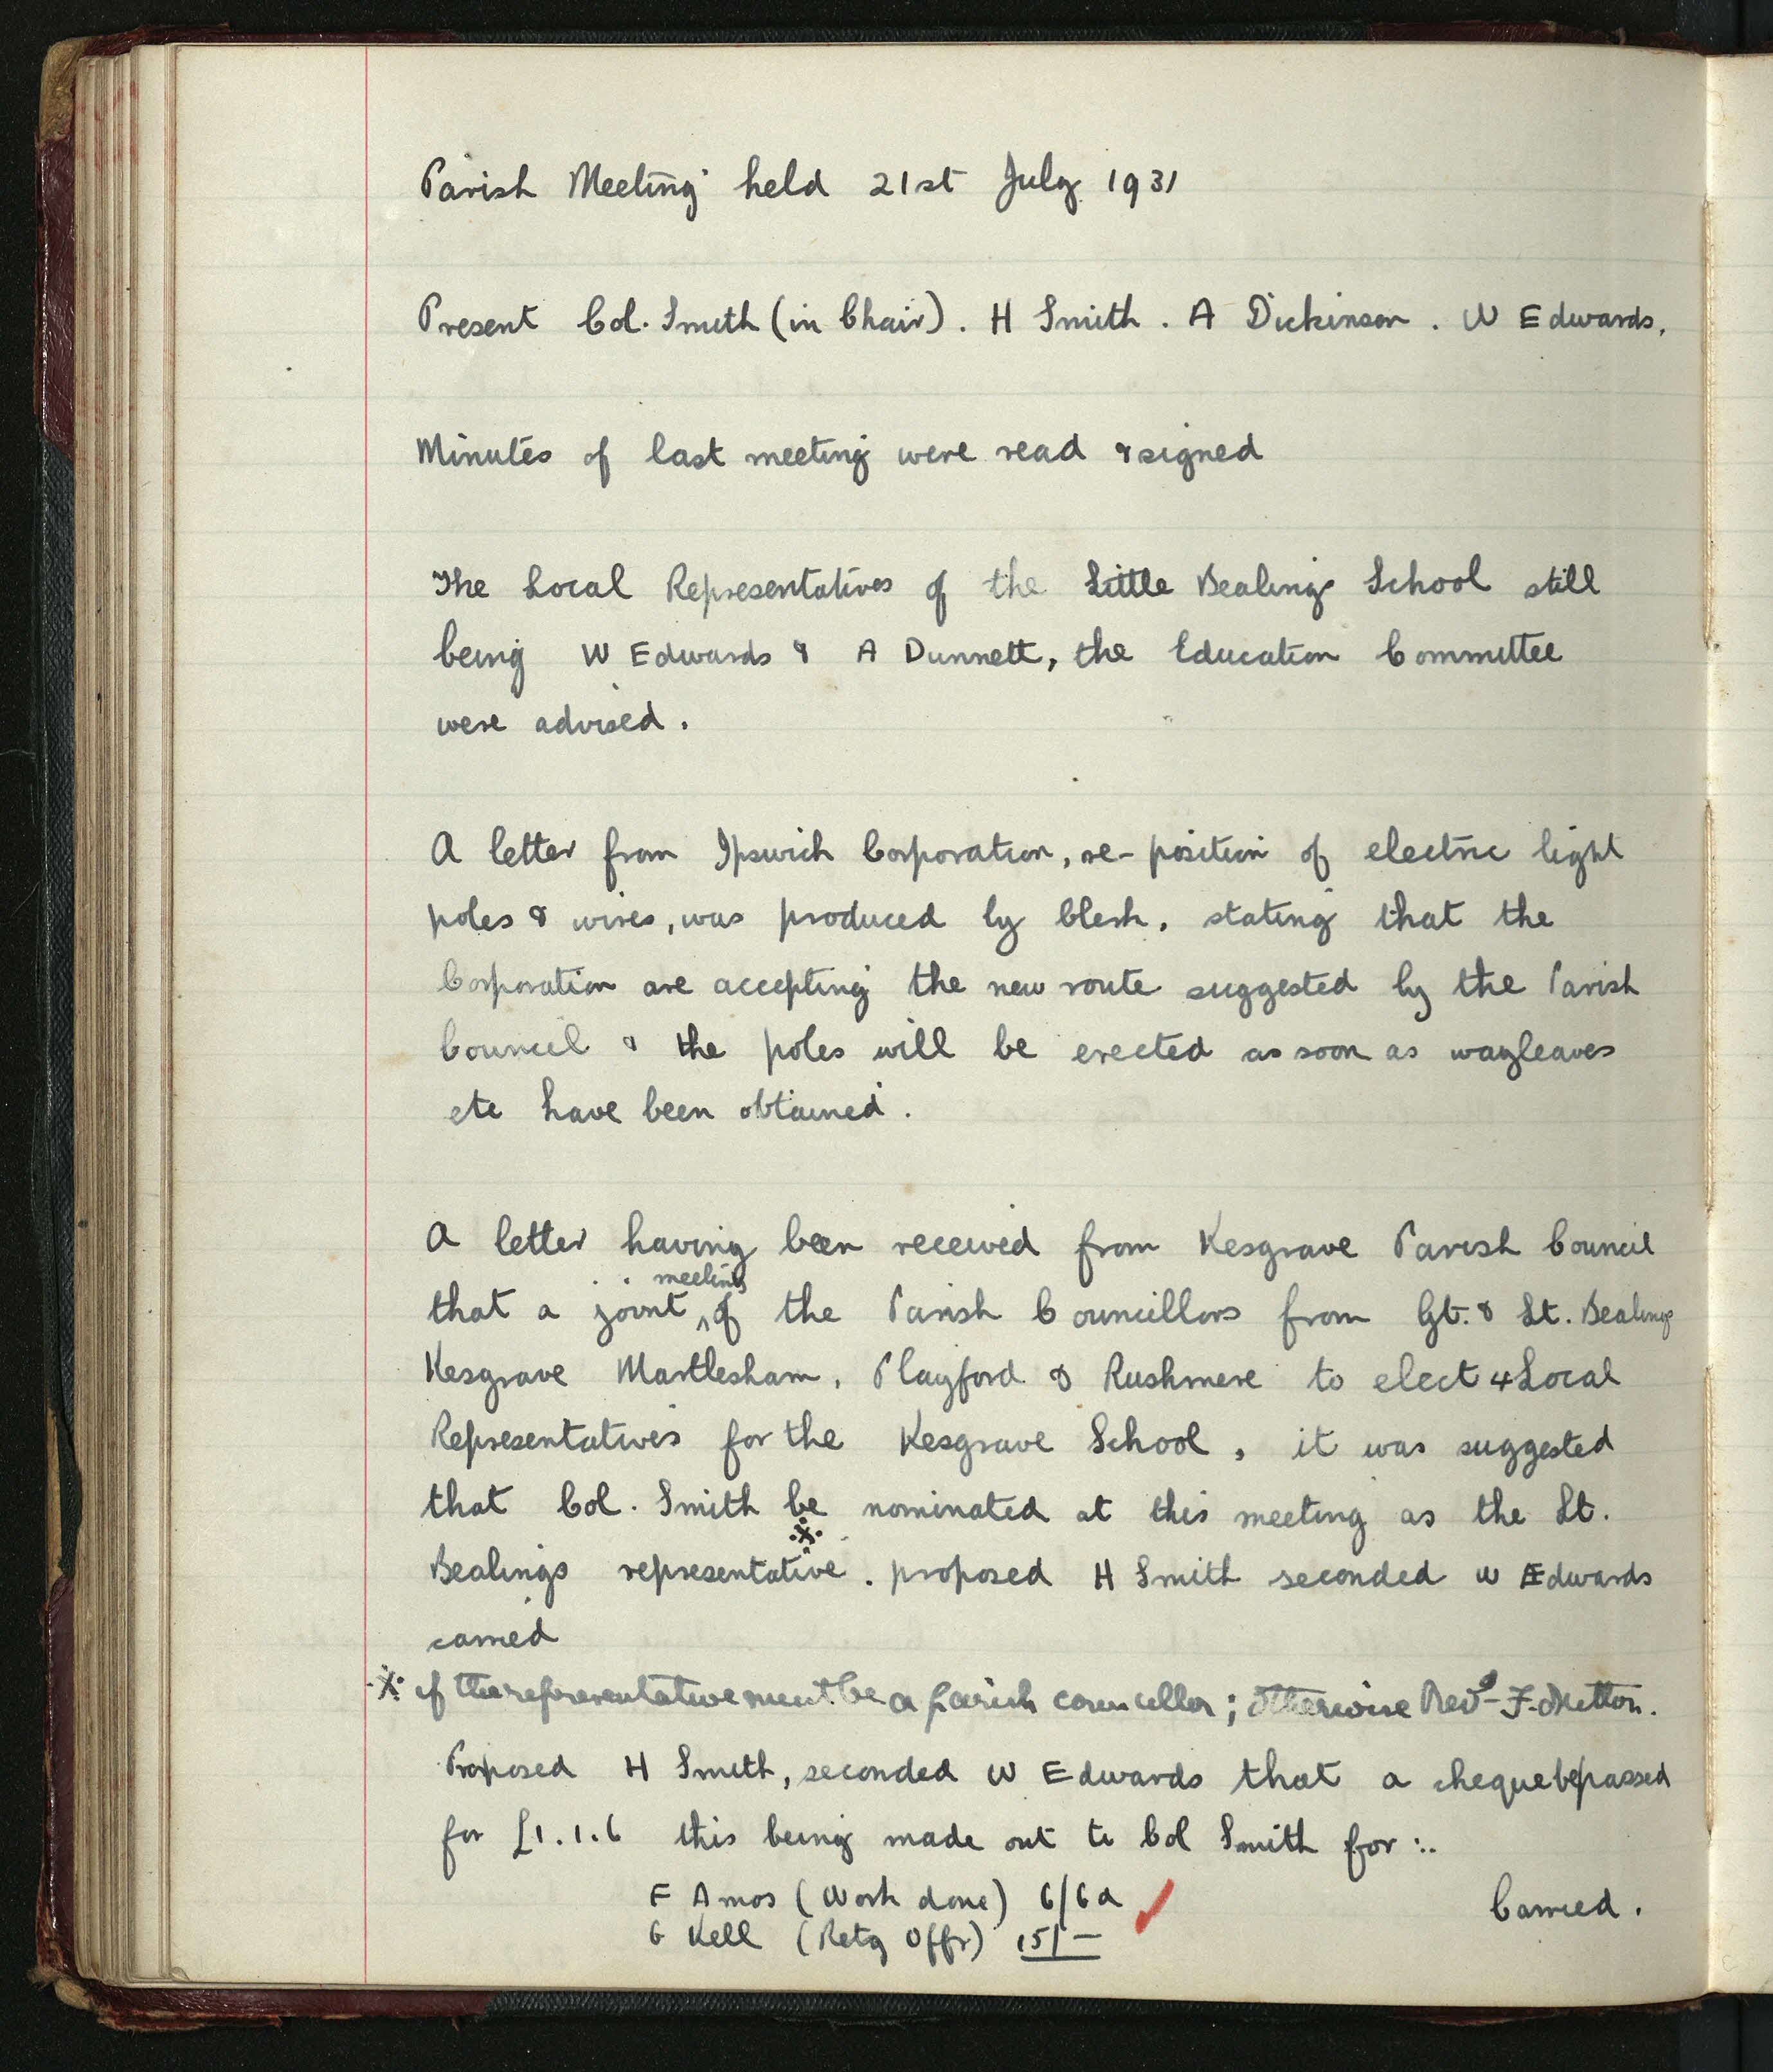 Parish Meeting held 21st July 1931
Present Col. Smith (in Chair). H Smith. A Dickinson. W Edwards,
Minutes of last meeting were read & signed
The Local Representatives of the Little Bealings School still
being W Edwards & A Dunnett, the Education Committee
were advised.
A letter from Ipswich Corporation, re-position of electric light
poles & wires, was produced by Clerk, stating that the
Corporation are accepting the new route suggested by the Parish
Council & the poles will be erected as soon as wayleaves
etc have been obtained.
A letter having been received from Kesgrave Parish Council
meeting
that a joint ^ of the Parish Councillors from Gt. & Lt. Bealings
Kesgrave Martlesham, Playford & Rushmere to elect 4 Local
Representatives for the Kesgrave School, it was suggested
that Col. Smith be nominated at this meeting as the Lt.
Bealings representative ※. proposed H Smith seconded W Edwards
carried
※ if the representative must be a parish councillor; otherwise Revd F.
Proposed H Smith, seconded W Edwards that a cheque be passed
for £1.1.6 this being made out to Col Smith for :.
F Amos (Work done) 6/6d ✓ Carried.
G Kell (Retg Offr) 15/-